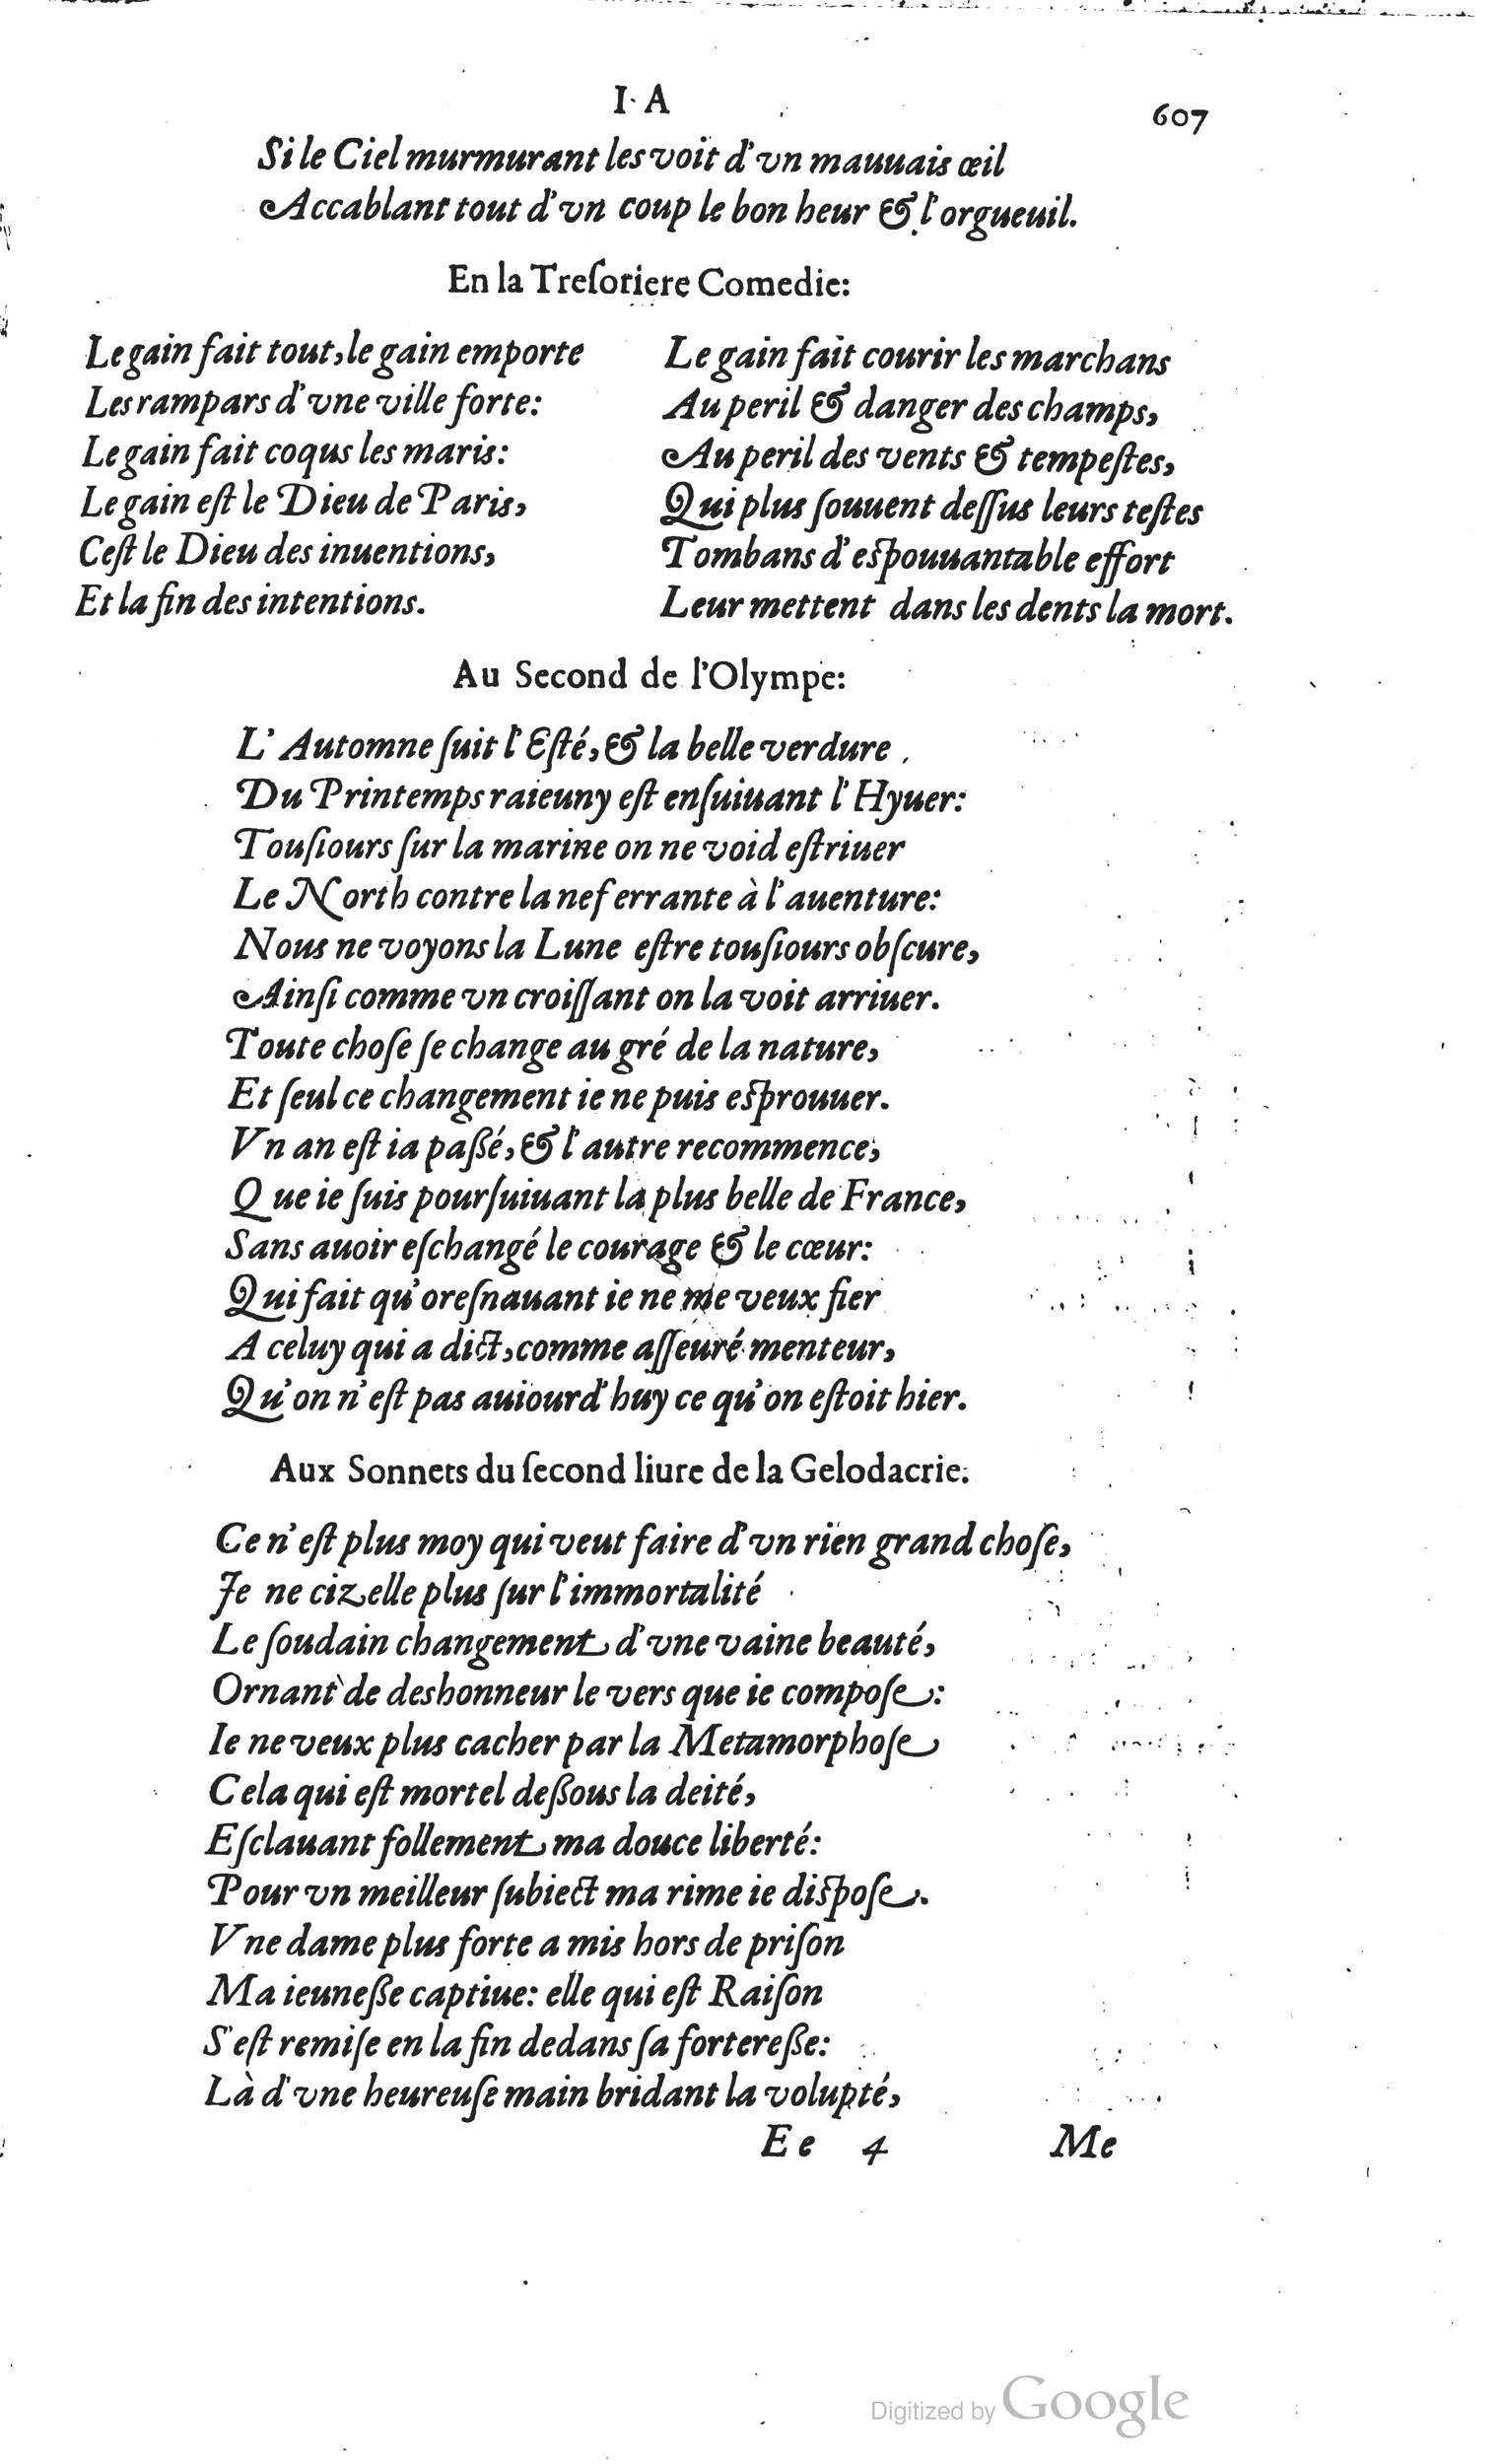 I. A
607
Si le Ciel murmurant les voit d'vn mauuais œil
Accablant tout d'vn coup le bon heur & l'orgueuil.
En la Treſoriere Comedie:
Le gain fait tout, le gain emporte
Les rampars d'vne ville forte:
Le gain fait coqus les maris:
Le gain eſt le Dieu de Paris,
Ceſt le Dieu des inuentions,
Et la fin des intentions.
Le gain fait courir les marchans
Au peril & danger des champs,
Au peril des vents & tempeſtes,
Qui plus ſouuent deſſus leurs teſtes
Tombans d'eſpouuantable effort
Leur mettent dans les dents la mort.
Au Second de l'Olympe:
L'Automne ſuit l'Eſté, & la belle verdure
Du Printemps raieuny eſt enſuiuant l'Hyuer:
Touſiours ſur la marine on ne void eſtriuer
Le North contre la nef errante à l'auenture:
Nous ne voyons la Lune eſtre touſiours obſcure,
Ainſi comme vn croiſſant on la voit arriuer.
Toute choſe ſe change au gré de la nature,
Et ſeul ce changement ie ne puis eſprouuer.
Vn an eſt ia paßé, & l'autre recommence,
Que ie ſuis pourſuiuant la plus belle de France,
Sans auoir eſchangé le courage & le cœur:
Qui fait qu'oreſnauant ie ne me veux fier
A celuy qui a dict, comme aſſeuré menteur,
Qu'on n'eſt pas auiourd'huy ce qu'on eſtoit hier.
Aux Sonnets du ſecond liure de la Gelodacrie:
Ce n'eſt plus moy qui veut faire d'vn rien grand choſe,
Je ne cizelle plus ſur l'immortalité
Le ſoudain changement d'vne vaine beauté,
Ornant de deshonneur le vers que ie compoſe:
Ie ne veux plus cacher par la Metamorphoſe
Cela qui eſt mortel deßous la deité,
Eſclauant follement ma douce liberté:
Pour vn meilleur ſubiect ma rime ie diſpoſe.
Vne dame plus forte a mis hors de priſon
Ma ieuneße captiue: elle qui eſt Raiſon
S'eſt remiſe en la fin dedans ſa fortereße:
Là d'vne heureuſe main bridant la volupté,
Ee 4
Me
Digitized by Google